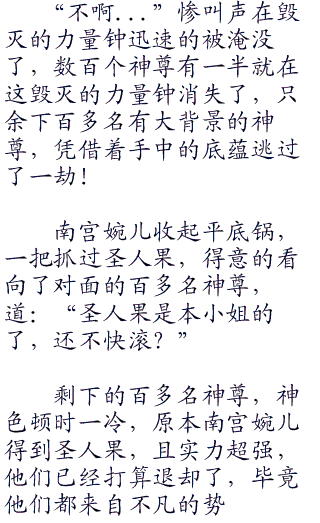 “不啊...”惨叫声在毁
灭的力量钟迅速的被淹没
了，数百个神尊有一半就在
这毁灭的力量钟消失了，只
余下百多名有大背景的神
尊，凭借着手中的底蕴逃过
了一劫！
南宫婉儿收起平底锅，
一把抓过圣人果，得意的看
向了对面的百多名神尊，
道：“圣人果是本小姐的
了，还不快滚？”
剩下的百多名神尊，神
色顿时一冷，原本南宫婉儿
得到圣人果，且实力超强，
他们已经打算退却了，毕竟
他们都来自不凡的势